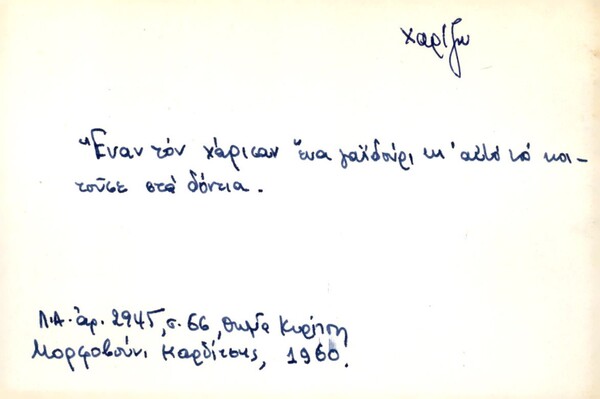 χαρίζω
Ἕναν τόν χάρισαν ἕνα γαϊδούρι κι' αὐτό τό κοι-
τοῦσε στά δόντια.
Λ.Α. ἀρ. 2945, σ. 66,
Μορφοβούνι Καρδίτσης, 1960.